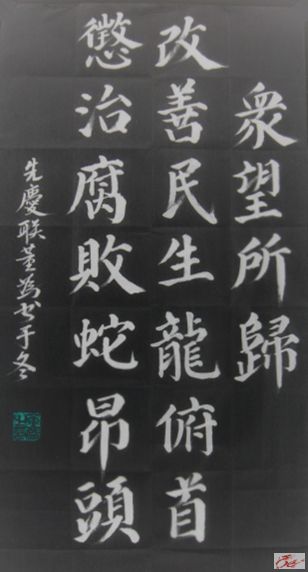 衆望所歸
改善民生龍俯首
懲治腐敗蛇昂頭
先慶联董為书于冬